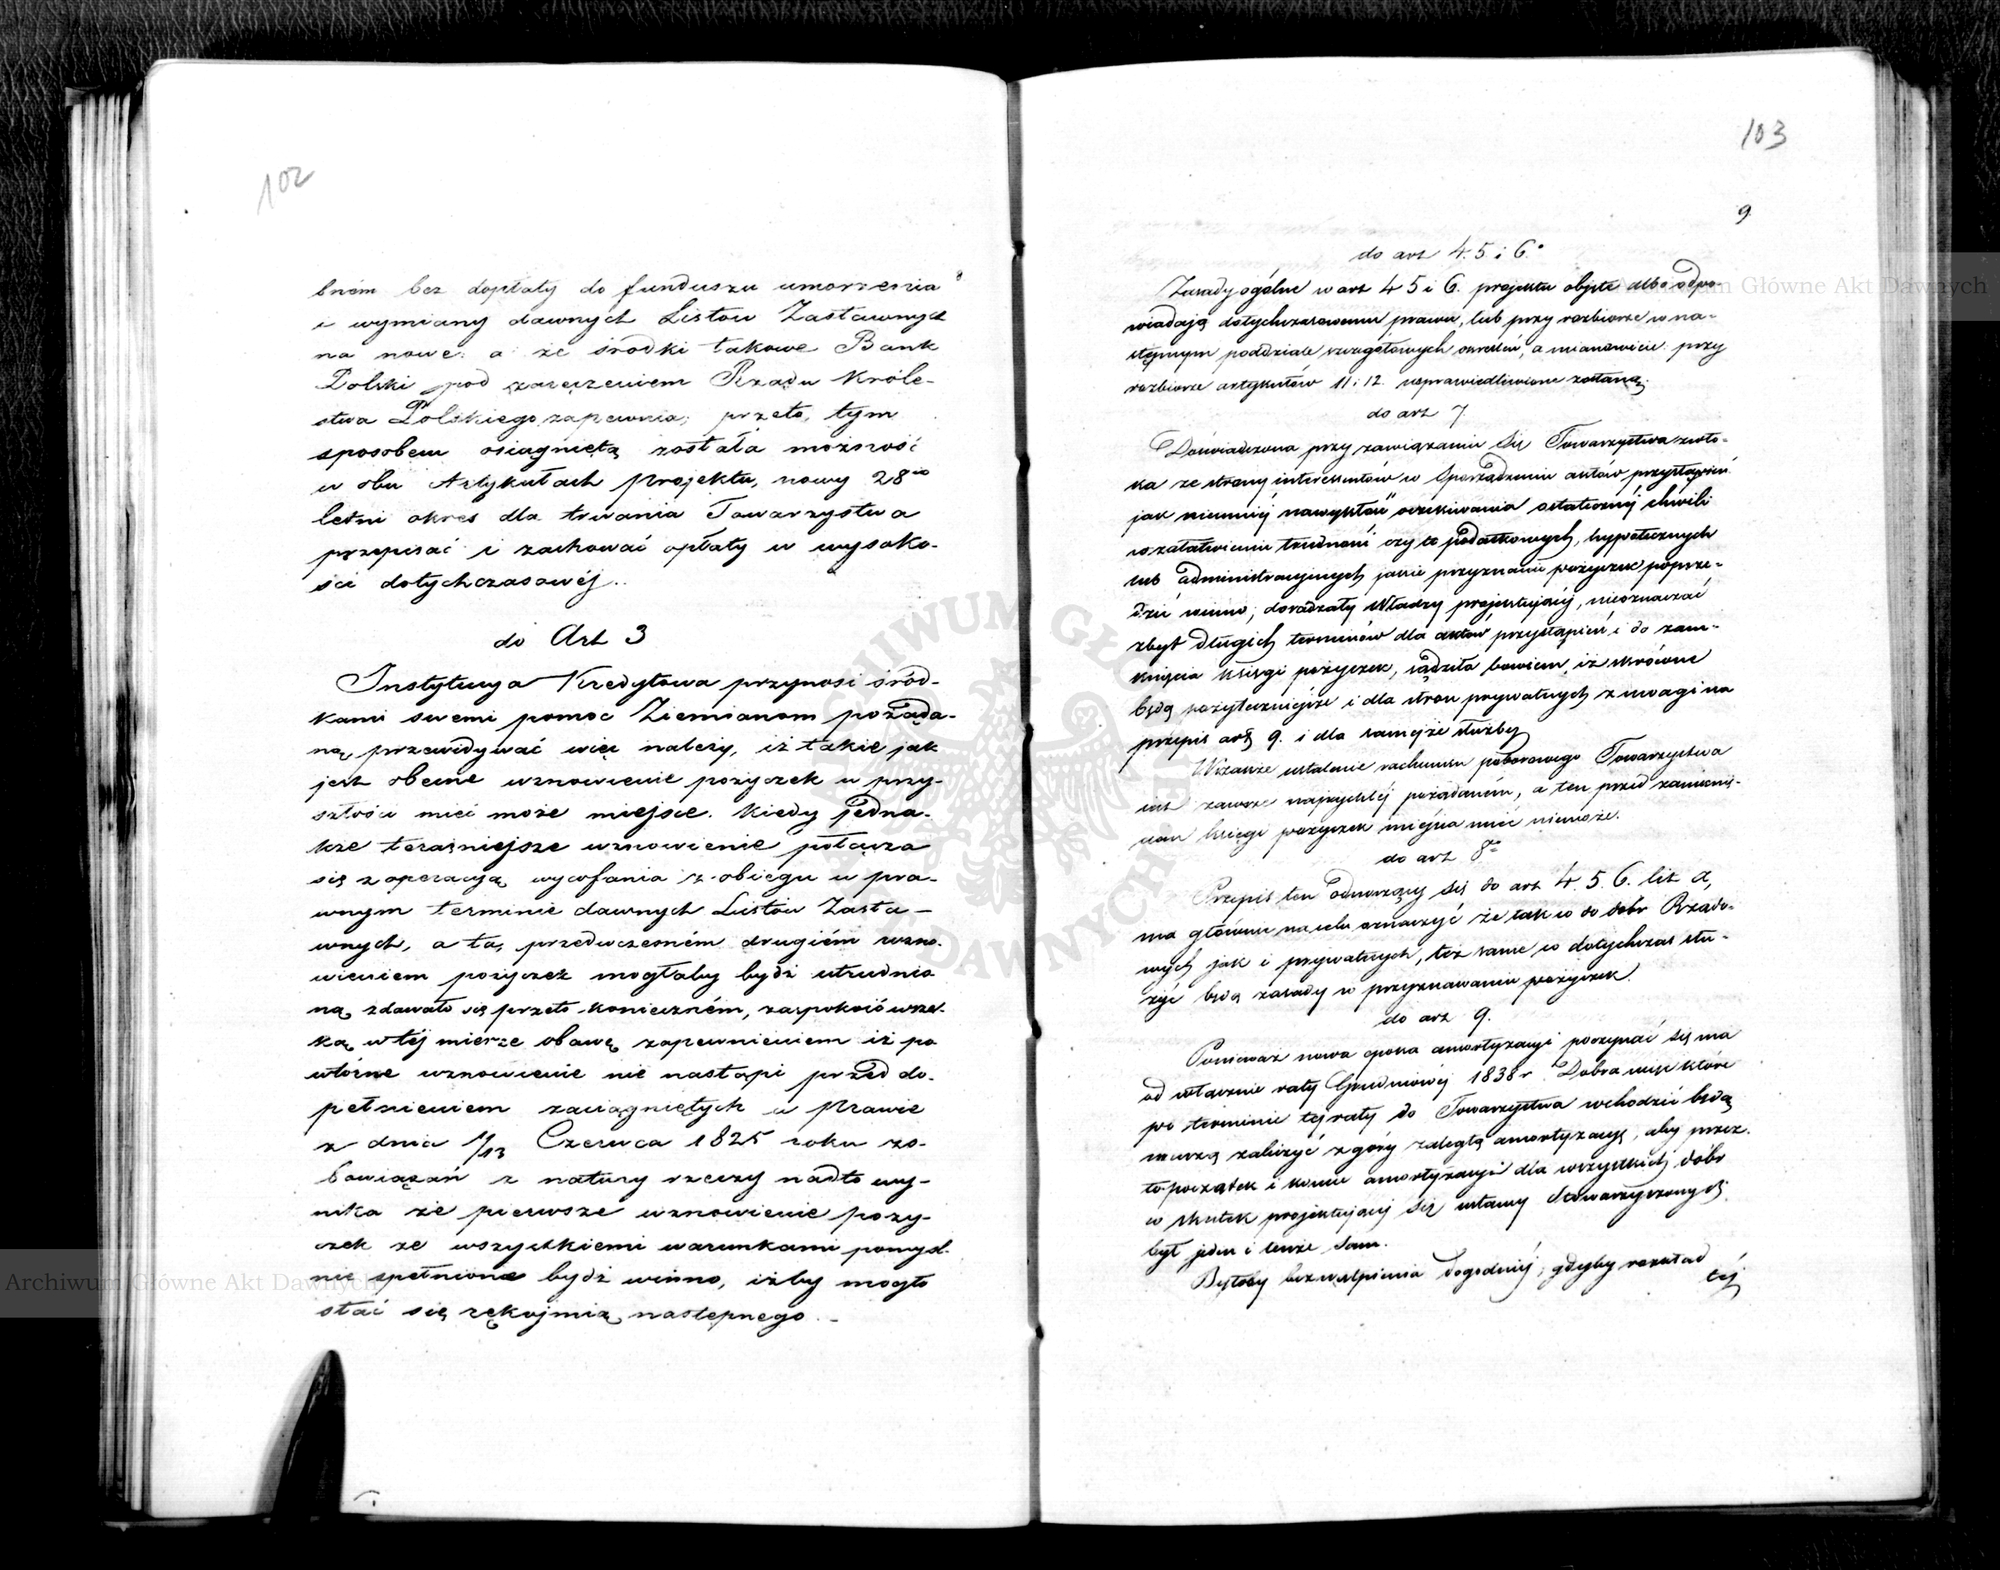 102
bném bez dopłaty do funduszu umorzenia
i wymiany dawnych Listów Zastawnych
na nowe: a że środki takowe Bank
Polski pod zaręczeniem Rządu Króle-
stwa Polskiego zapewnia; przeto, tym
sposobem osiągniętą została możność
w obu Artykułach projektu, nowy 28io
letni okres dla trwania Towarzystwa
przepisać i zachować opłaty w wysoko-
ści dotychczasowéj.
do Art 3
Instytucya Kredytowa przynosi środ-
kami swemi pomoc Ziemianom pożąda-
ną, przewidywać więc należy, iż takie jak
jest obecne wznowienie pożyczek w przy-
szłości mieć może miejsce. Kiedy jedna-
kże teraźniejsze wznowienie połącza
się z operacyą wycofania z obiegu w pra-
wnym terminie dawnych Listów Zasta-
wnych, a ta, przedwczesném drugiém wzno-
wieniem pożyczek mogłaby bydź utrudnio
ną, zdawało się przeto konieczném, zaspokoić wszel-
ką w téj mierze obawę zapewnieniem iż po
wtórne wznowienie nie nastąpi przed do-
pełnieniem zaciągniętych w prawie
z dnia 1/13 Czerwca 1825 roku zo-
bowiązań z natury rzeczy nadto wy-
nika że pierwsze wznowienie poży-
czek ze wszystkiemi warunkami pomyśl-
nie spełnione bydź winno, iżby mogło
stać się rękojmią następnego.
103
9
do art 4. 5. i 6.
Zasady ogólne w art 4 5 i 6. projektu objęte albo odpo-
wiadają dotychczasowemu prawu, lub przy rozbiorze w na-
stępnym poddziale szczegółowych określeń, a mianowicie: przy
rozbiorze artykułów 11 i 12. usprawiedliwione zostaną.
do art 7.
Doświadczona przy zawiązaniu się Towarzystwa zwło-
ka ze strony interessentów w sporządzeniu aktów przystąpień,
jak niemniéj nawyknień oczekiwania ostatecznéj chwili
w załatwieniu trudności czy to podatkowych, hypotecznych
lub administracyjnych jakie przyznanie pożyczek poprze-
dzić winno, doradzały Władzy projektującéj, nieoznaczać
zbyt długich terminów dla aktów przystąpień i do zam-
knięcia księgi pożyczek, sądziła bowiem, iż skrócone
będą pożyteczniejsze i dla stron prywatnych z uwagi na
przepis art 9. i dla samejże służby
Wszakże ustalenie rachunku poborowego Towarzystwa
jest zawsze najrychléj pożądaném, a ten przed zamknię-
ciem księgi pożyczek miejsca mieć niemoże.
do art 8go
Przepis ten odnoszący się do art 4. 5. 6. lit a,
ma głównie na celu oznaczyć że tak co do dóbr Rządo-
wych jak i prywatnych, też same co dotychczas słu-
żyć będą zasady w przyznawaniu pożyczek.
do art 9.
Ponieważ nowa epoka amortyzacyi poczynać się ma
od włącznie raty Grudniowéj 1838 r. Dobra więc które
po terminie téj raty do Towarzystwa wchodzić będą
muszą zaliczyć z góry zaległą amortyzacyę, aby przez
to początek i koniec amortyzacyi dla wszystkich dóbr
w skutek projektującéj się ustawy stowarzyszonych
był jeden i tenże sam.
Byłoby bezwątpienia dogodniéj, gdyby rozkład
téj